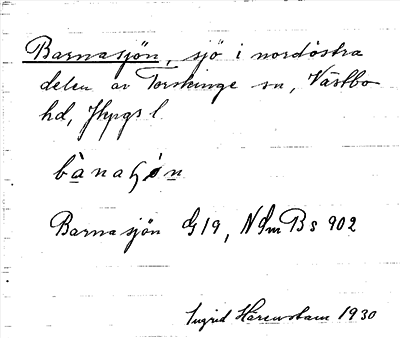 Barnasjön, sjö i nordöstra
delen av Torskinge sn, Västbo
hd, Jkpgs l.
bànaɧøn
Barnasjön G19, NSmBs 902
Ingrid Härenstam 1930